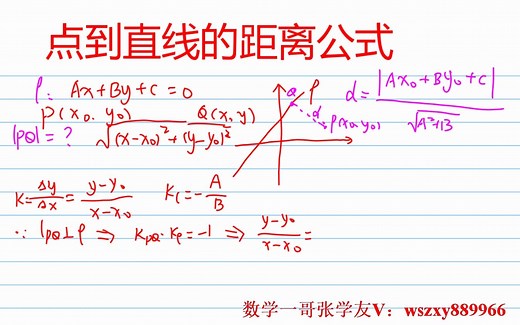 点到直线的距离公式
l: Ax+By+C=0
P(x₀, y₀) Q(x, y)
|PQ|=? √((x-x₀)²+(y-y₀)²)
Q l
d
P(x₀, y₀)
d=|Ax₀+By₀+C|/√(A²+B
K=Δy/Δx=(y-y₀)/(x-x₀) Kₗ=-A/B
∵ lPQ⊥l ⇒ KPQ·Kₗ=-1 ⇒ (y-y₀)/(x-x₀)=
数学一哥张学友V：wszxy889966